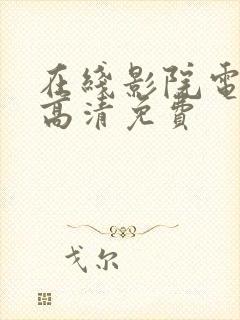 在綫影院電
高清免費
戈尔